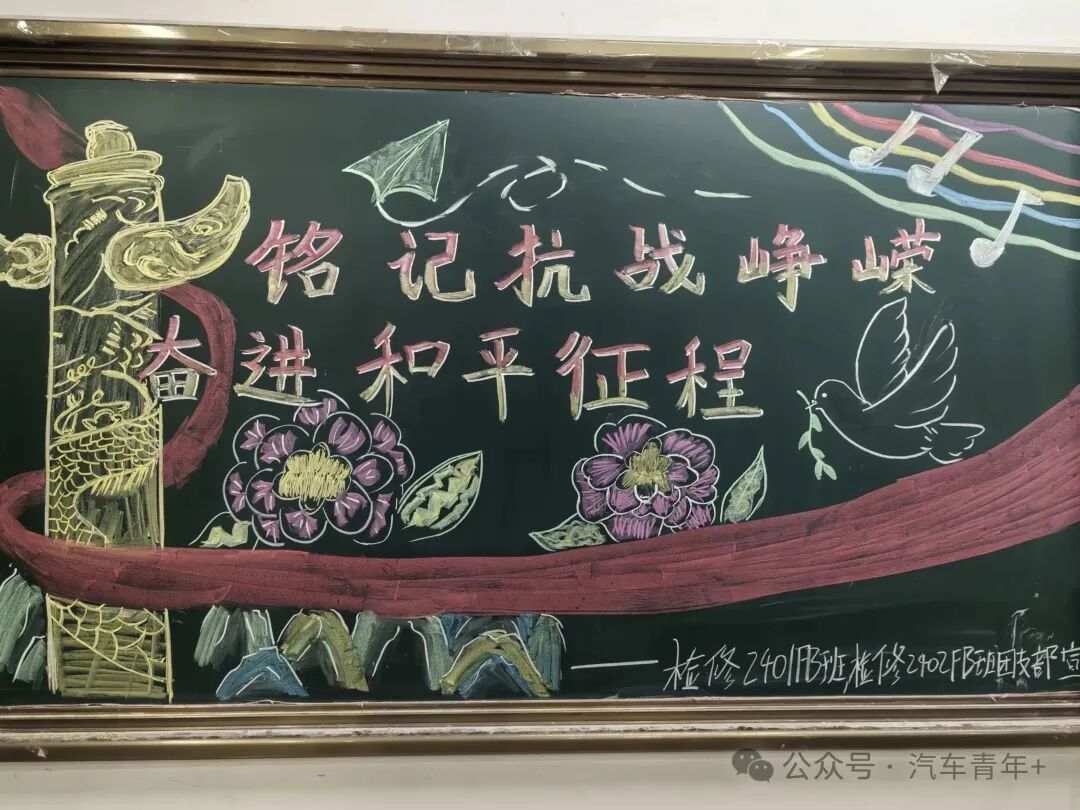 铭记抗战峥嵘
奋进和平征程
——检修2401FB班,检修2402FB班团支部宣
公众号·汽车青年+